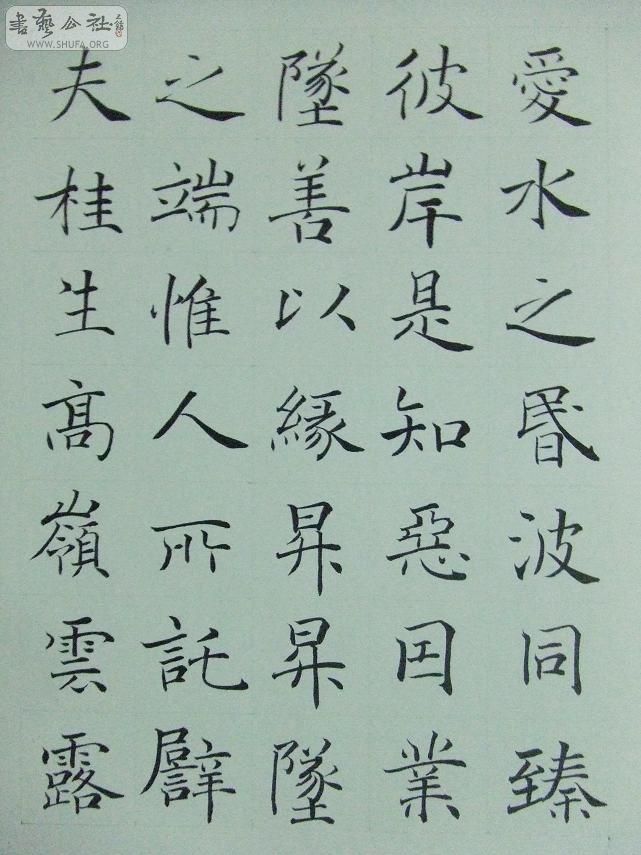 書藝公社
WWW.SHUFA.ORG
愛水之昬波同臻
彼岸是知惡因業
墜善以緣昇昇墜
之端惟人所託譬
夫桂生髙嶺雲露